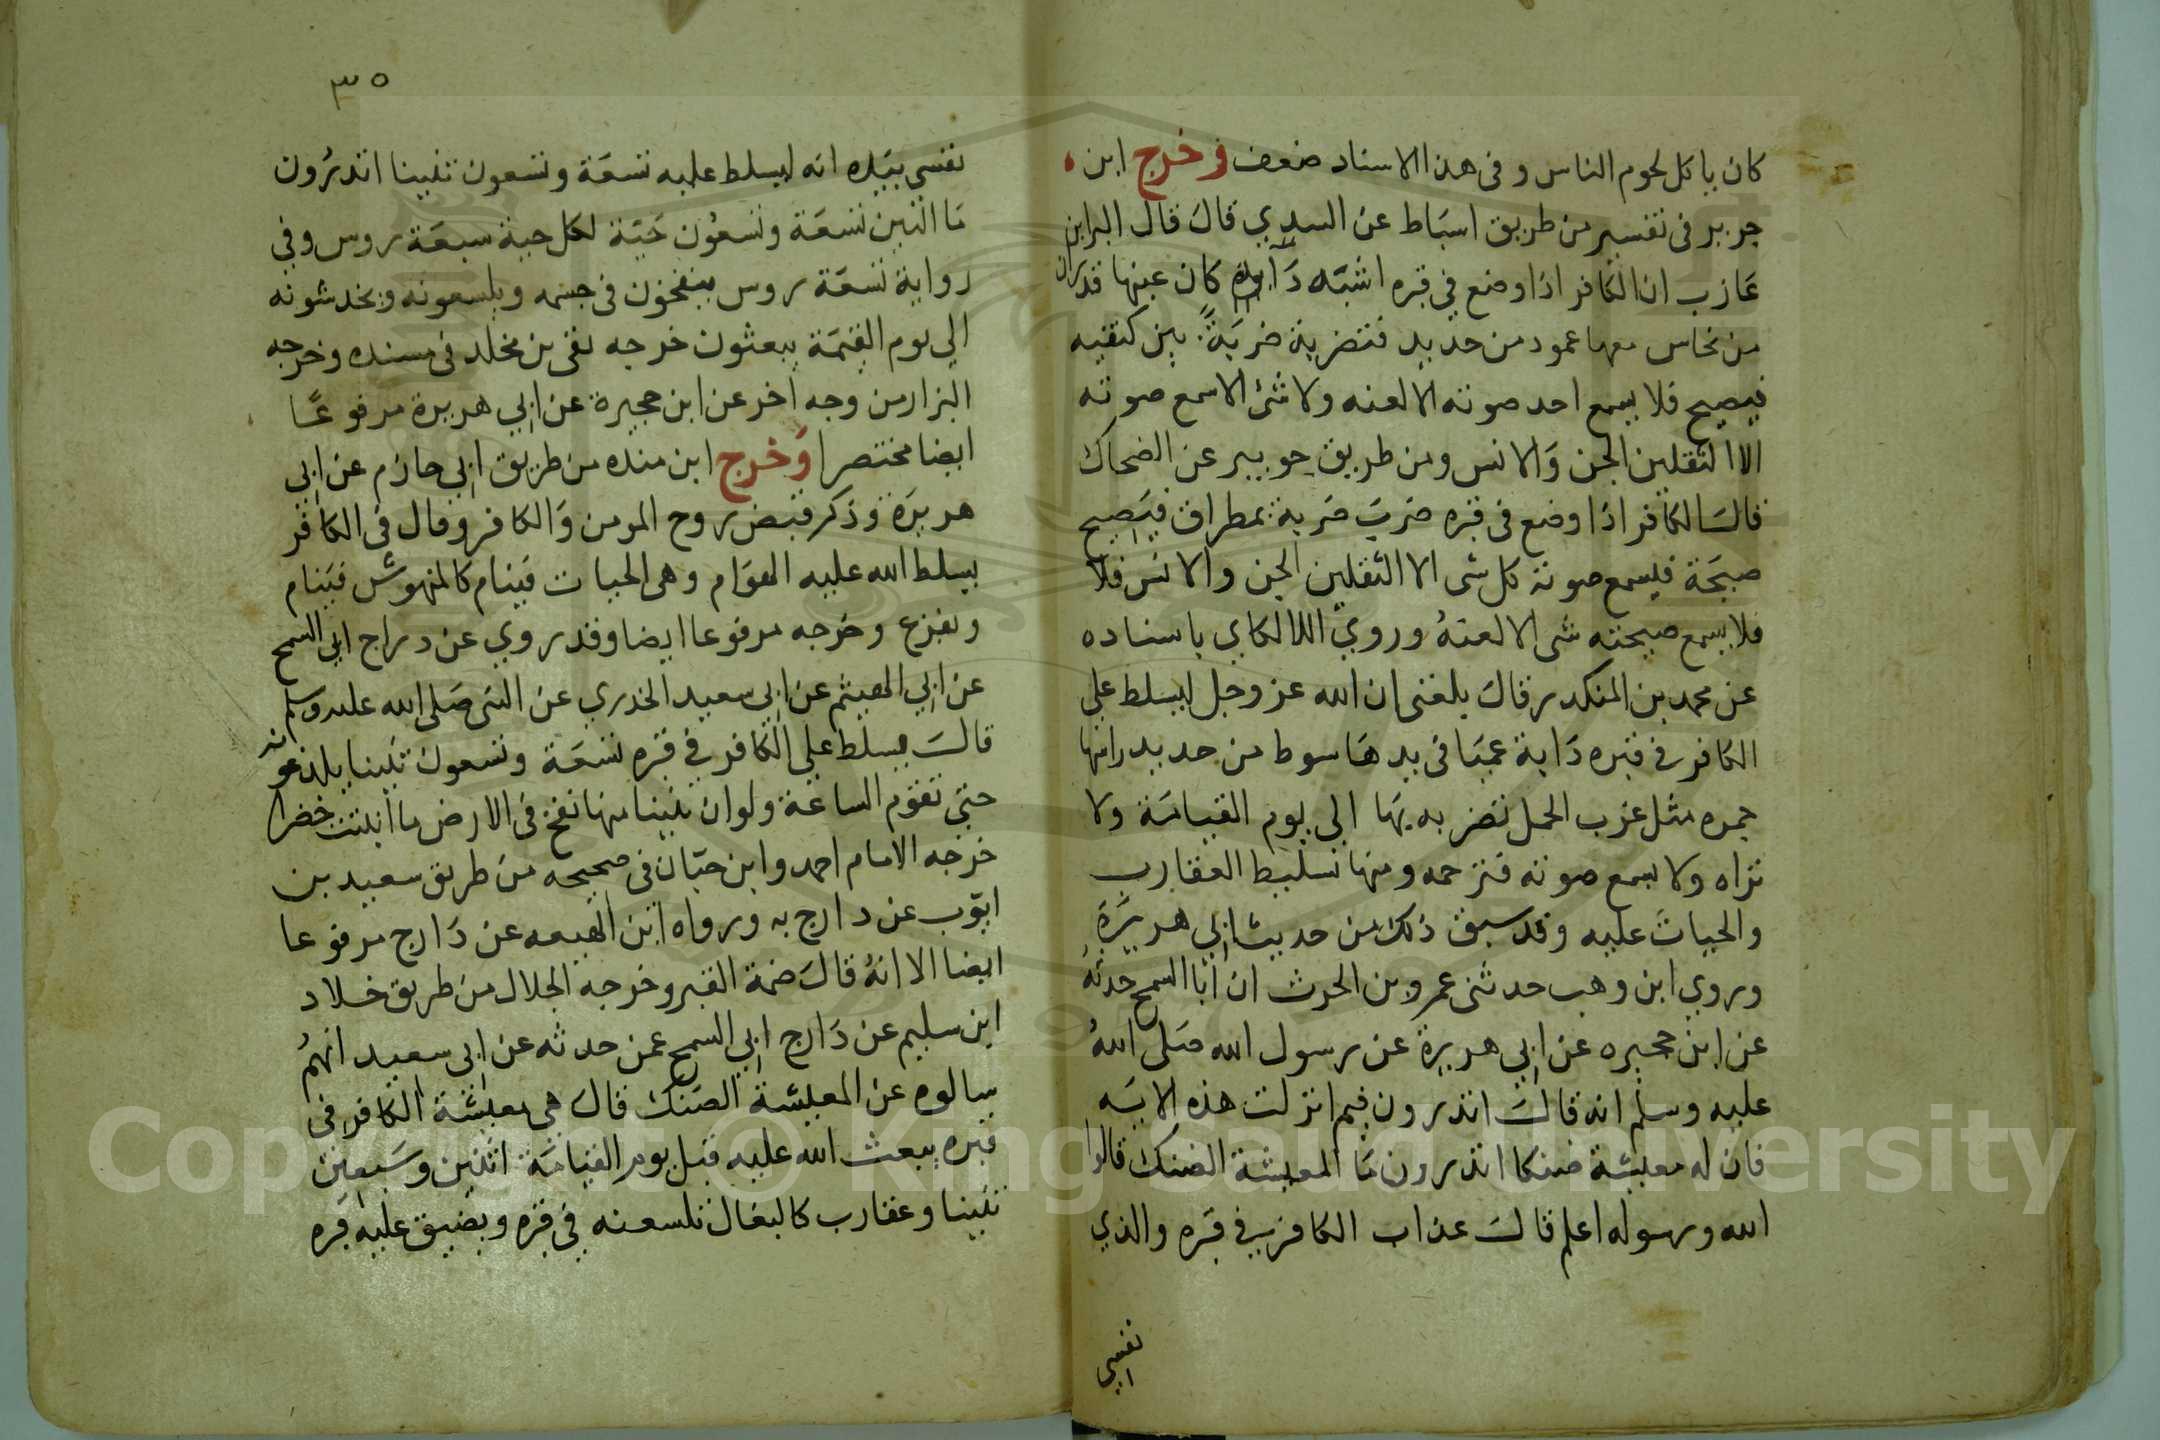 كان ياكل لحوم الناس وفى هذا الاسناد ضعف وخرج ابن
جرير فى تفسيره من طريق اسباط عن السدي قال قال البرابن
عازب ان الكافر اذا وضع في قبره اشبه دابة كان عينها قدران
من نحاس معها عمود من حديد فتضربه ضربة بين كتفيه
فيصيح فلا يسمع احد صوته الا لعنه ولا شئ الا سمع صوته
الا الثقلين الجن والانس ومن طريق جويبر عن الضحاك
قال الكافر اذا وضع فى قبره ضرب ضربة بمطراق فيصيح
صيحة فيسمع صوته كل شى الا الثقلين الجن والانس فلا
فلا يسمع صيحته شى الا لعنهُ وروي اللالكاي باسناده
عن محمد بن المنكدر قال بلغنى ان الله عز وجل ليسلط على
الكافر في قبره دابة عميا فى يدها سوط من حديد راسها
جمره مثل غرب الجمل تضربه بها الى يوم القيامة ولا
تراه ولا يسمع صوته فترحمه ومنها تسليط العقارب
والحيات عليه وقد سبق ذلك من حديث ابي هريرة
وروي ابن وهب حدثنى عمرو بن الحرث ان ابا السمح حدثهُ
عن ابن حجيره عن ابي هريرة عن رسول الله صلى اللهُ
عليه وسلم انه قال اتدرون فيم انزلت هذه الايه
فان له معيشة ضنكا اتدرون مَا المعيشة الضنك قالوا
الله ورسوله اعلم قال عذاب الكافر في قبره والذي
نفسي
٣٥
نفسي بيَده انه ليسلط عليه تسعَة وتسعون تنينا اتدرُون
مَا التنين تسعَة وتسعُون حَيّة لكل حية سبعَة روس وفي
رواية تسعَة روس ينفخون فى جسمه ويلسعونه ويخدشونه
الي يوم القيمَة يبعثون خرجه بقى بن مخلد فى مسنده وخرجه
البزار من وجه اخر عن ابن حجيرة عن ابي هريرة مرفوعًا
ايضا مختصرا وَخرج ابن منده من طريق ابي حازم عن ابي
هريرَة وذكر قبض روح المومن وَالكافر وقال فى الكافر
يسلط الله عليه الهوَام وهى الحيات فينام كالمنهوش فيَنام
ويفزع وخرجه مرفوعا ايضا وقد روي عن دراج ابي السمح
عن ابي الهيثم عن ابي سعيد الخدري عن النبى صَلى الله عليه وسلم
قال يسلط على الكافر في قبره تسعَة وتسعون تنينا يلدغونه
حتى تقوم الساعَة ولو ان تنينا منها نفخ فى الارض ما انبتت خضرا
خرجه الامام احمد وابن حبّان فى صحيحه من طريق سعيد بن
ايوّب عن دارج به ورواه ابن لهيعه عن دَارج مرفوعا
ايضا الا انهُ قال ضمة القبر وخرجه الخلال من طريق خلاد
ابن سليم عن دَارج ابي السمح عمن حدثه عن ابى سعيد انهُم
سالوه عن المعيشة الضنك قال هى معيشة الكافر فى
قبره يبعث الله عليه قبل يوم القيامَة اثنين وسَبعين
تنينا وعقارب كالبغال تلسعنه في قبره ويضيق عليه قبره
Copyright © King Saud University